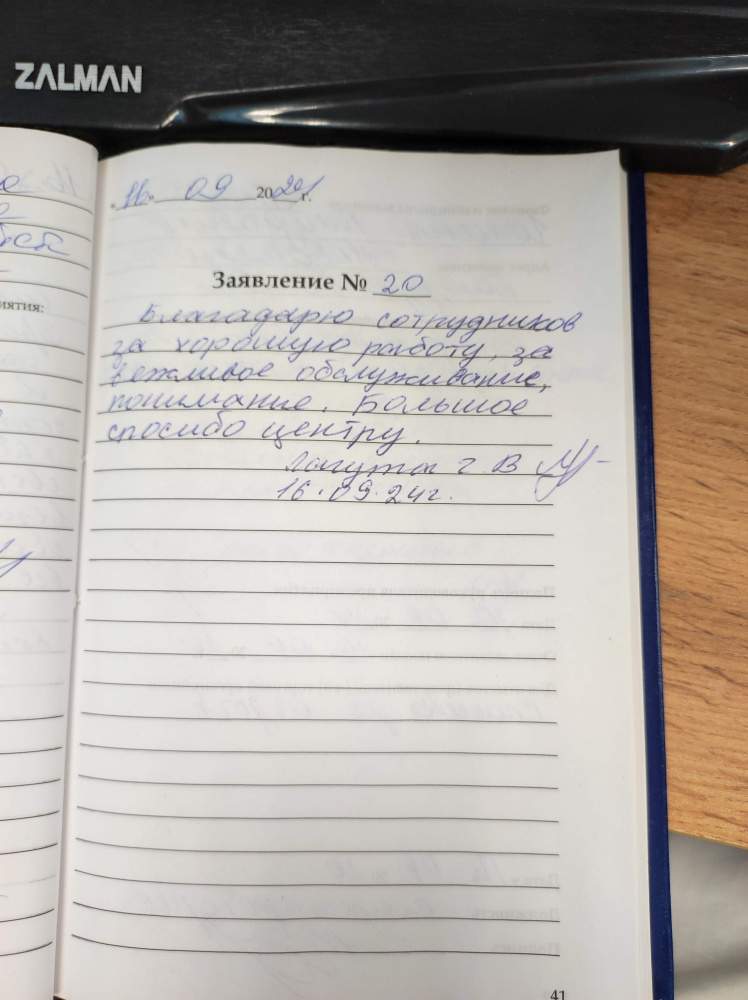 ZALMAN
"16" 09 2024 г.
Заявление № 20
Благадарю сотрудников
за хорошую работу, за
вежливое обслуживание,
понимание. Большое
спосибо центру.
Лагута Г В
16.09.24г.
иятия:
41